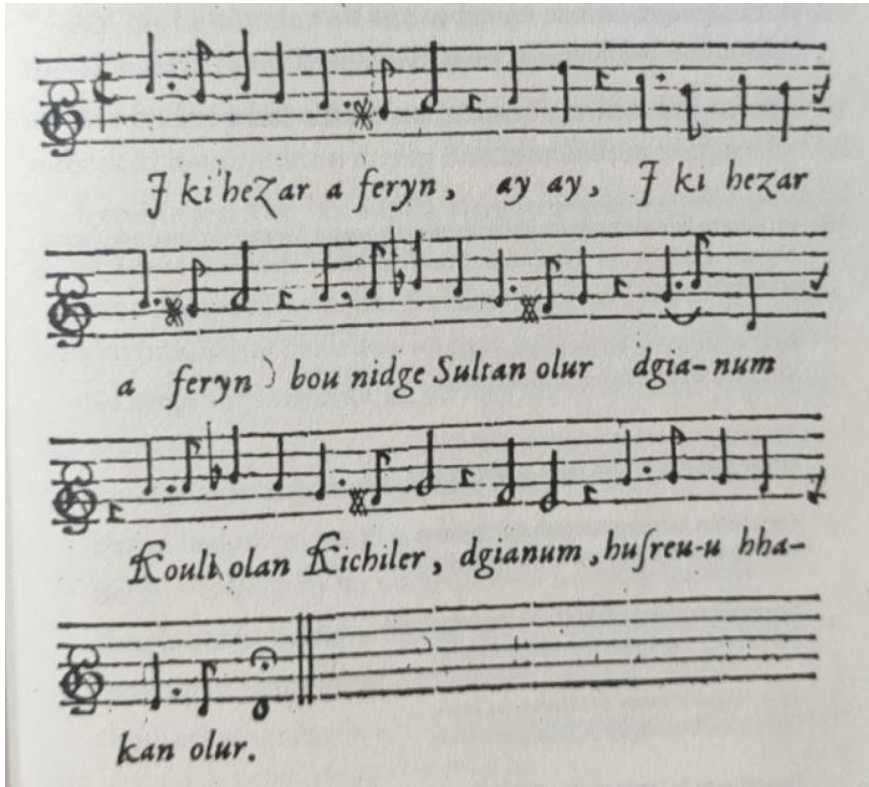 J ki hezar a feryn, ay ay, J ki hezar
a feryn) bou nidge Sultan olur dgia-num
Kouli olan Kichiler, dgianum, huſreu-u hha-
kan olur.